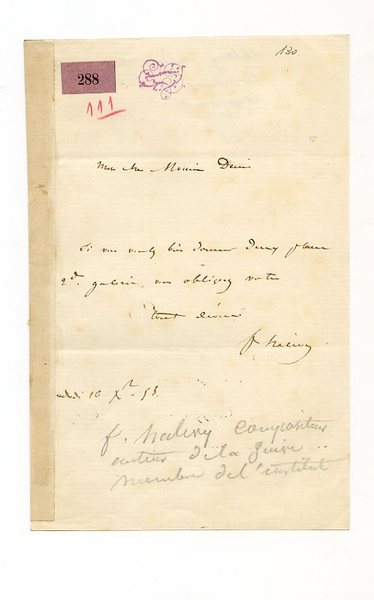 130
288
111
Mon cher Monsieur Denis
Si vous voulez bien donner deux places
2de galerie, vous obligerez votre
tout dévoué
f halévy
16 Xbre 53
f. halévy compositeur
auteur de la juive
membre de l'institut